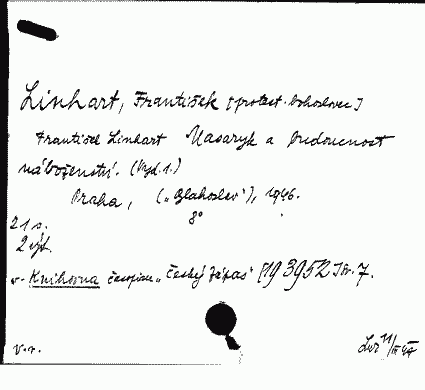 Linhart, František [protest. bohoslovec]
František Linhart Masaryk a budoucnost
náboženství. (Vyd. 1.)
Praha, („Blahoslav“), 1946.
8°
21 s.
2 výt.
v- Knihovna časopisu „Český zápas“ [193952 Sv. 7.
v.r.